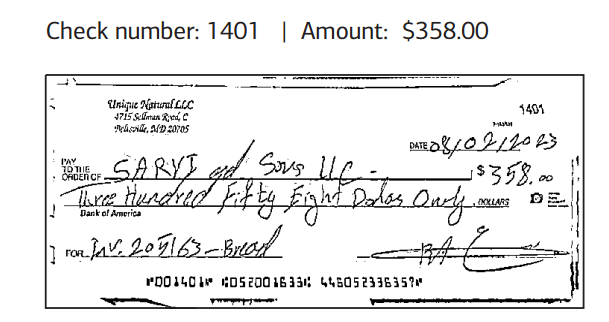 Check number: 1401 | Amount: $358.00
1401
Unique Natural LLC
4715 Sellman Road, C
Beltsville, MD 20705
DATE 08/02/2023
PAY TO THE ORDER OF SARVI and Sons LLC - $ 358.00
Three Hundred Fifty Eight Dolas Only. DOLLARS
Bank of America
FOR Inv. 205163 - Bread
⑈001401⑈ ⑆052001633⑆ 446052336357⑈